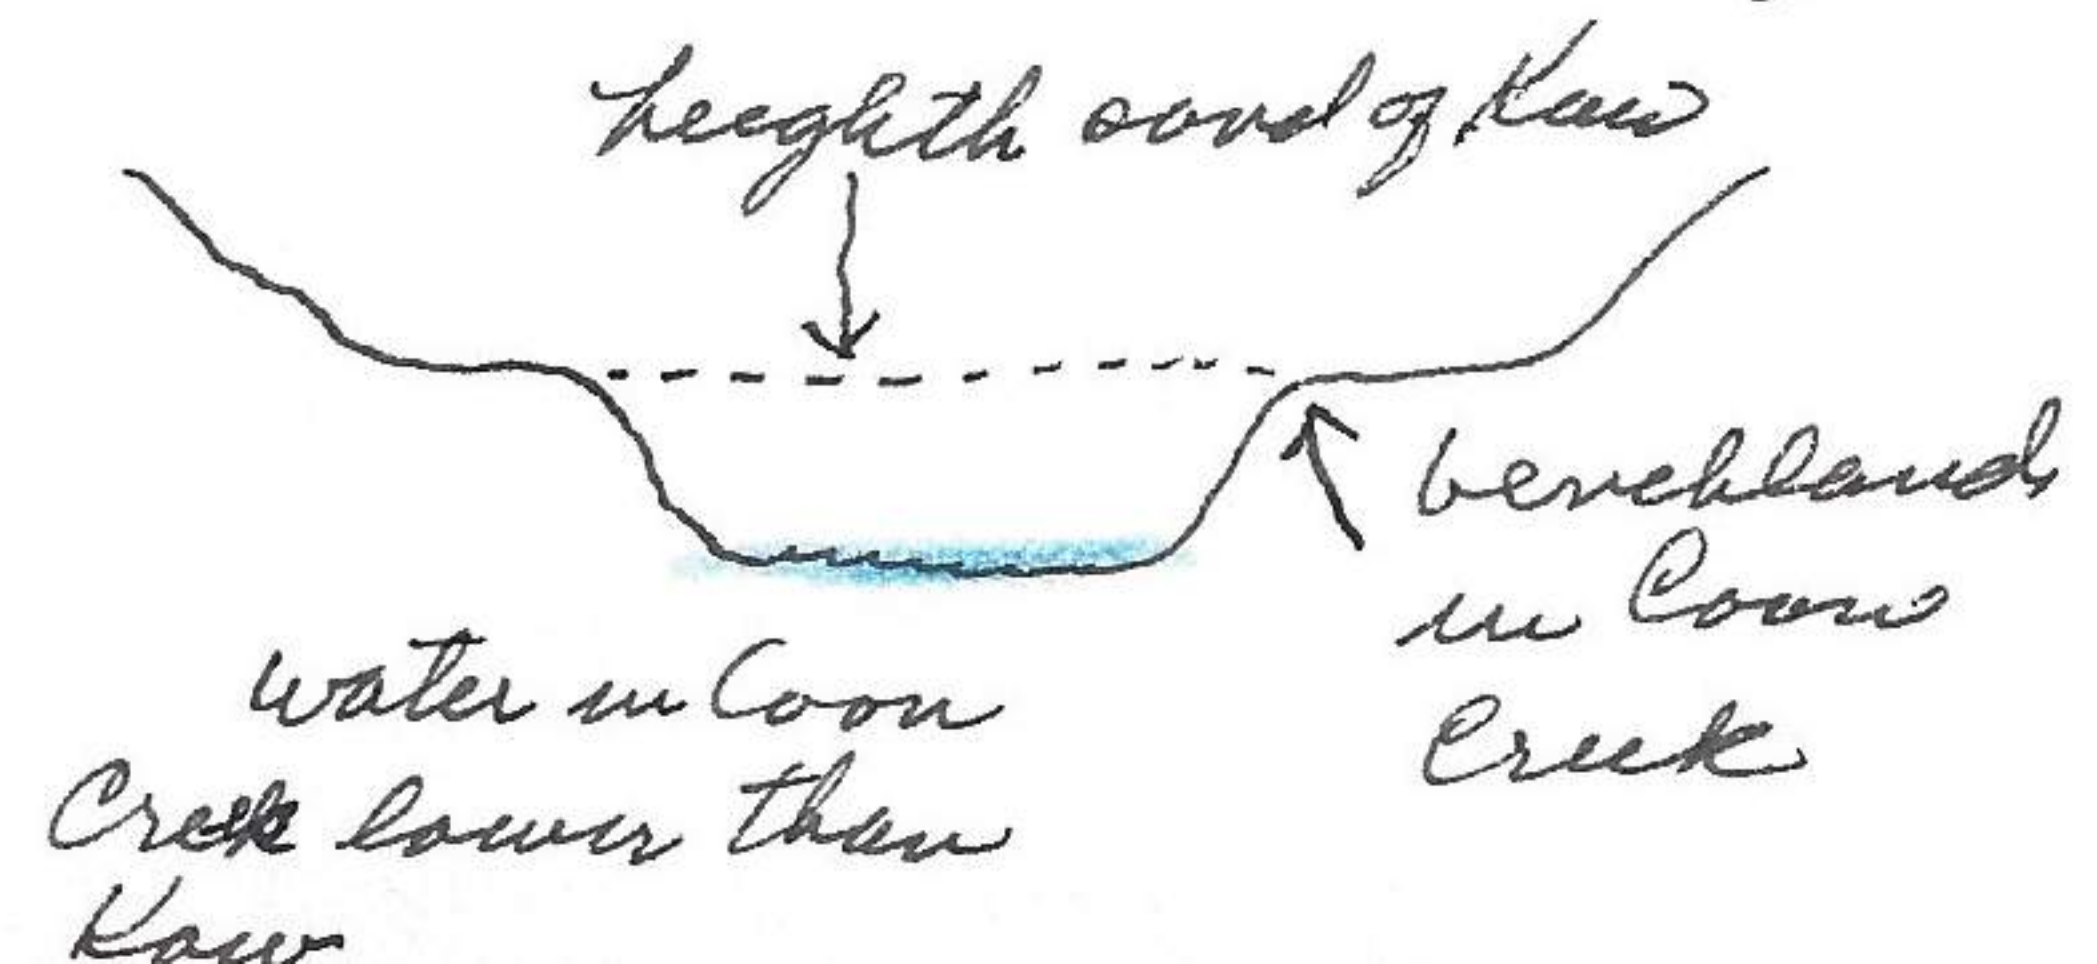 heeghth sand of Kaw
benchland
in Coon
Creek
water in Coon
Creek lower than
Kaw